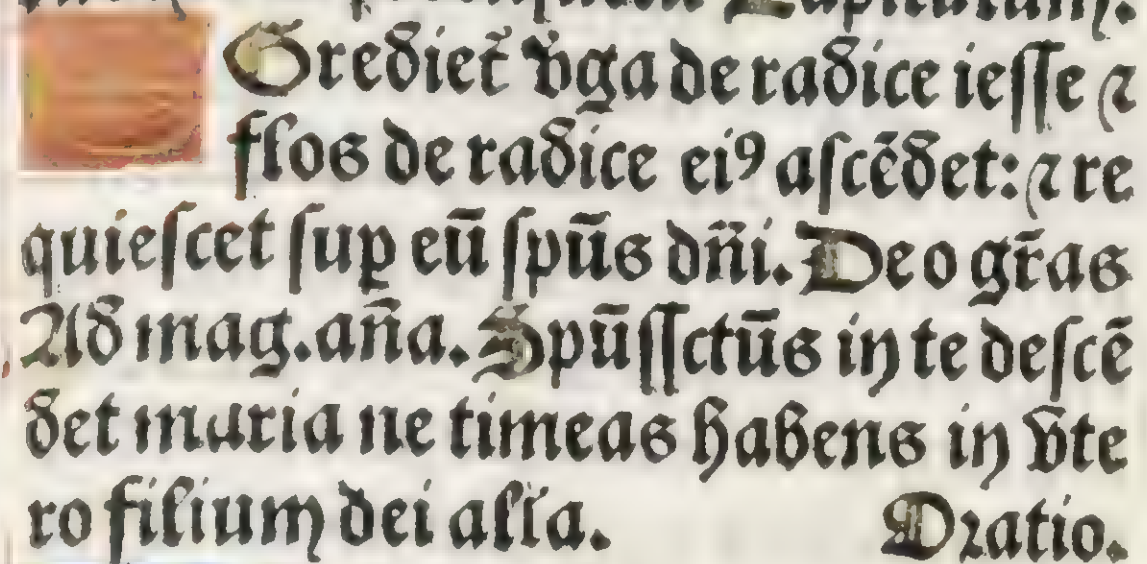 Capitulum.
Grediet̃ v̄ga de radice iesse ⁊
flos de radice eiꝰ ascēdet: ⁊ re
quiescet sup eū spūs dn̄i. Deo gr̃as
Ad mag. an̄a. Spūssctūs in te descē
det maria ne timeas habens in vte
ro filium dei all̃a. Oratio.